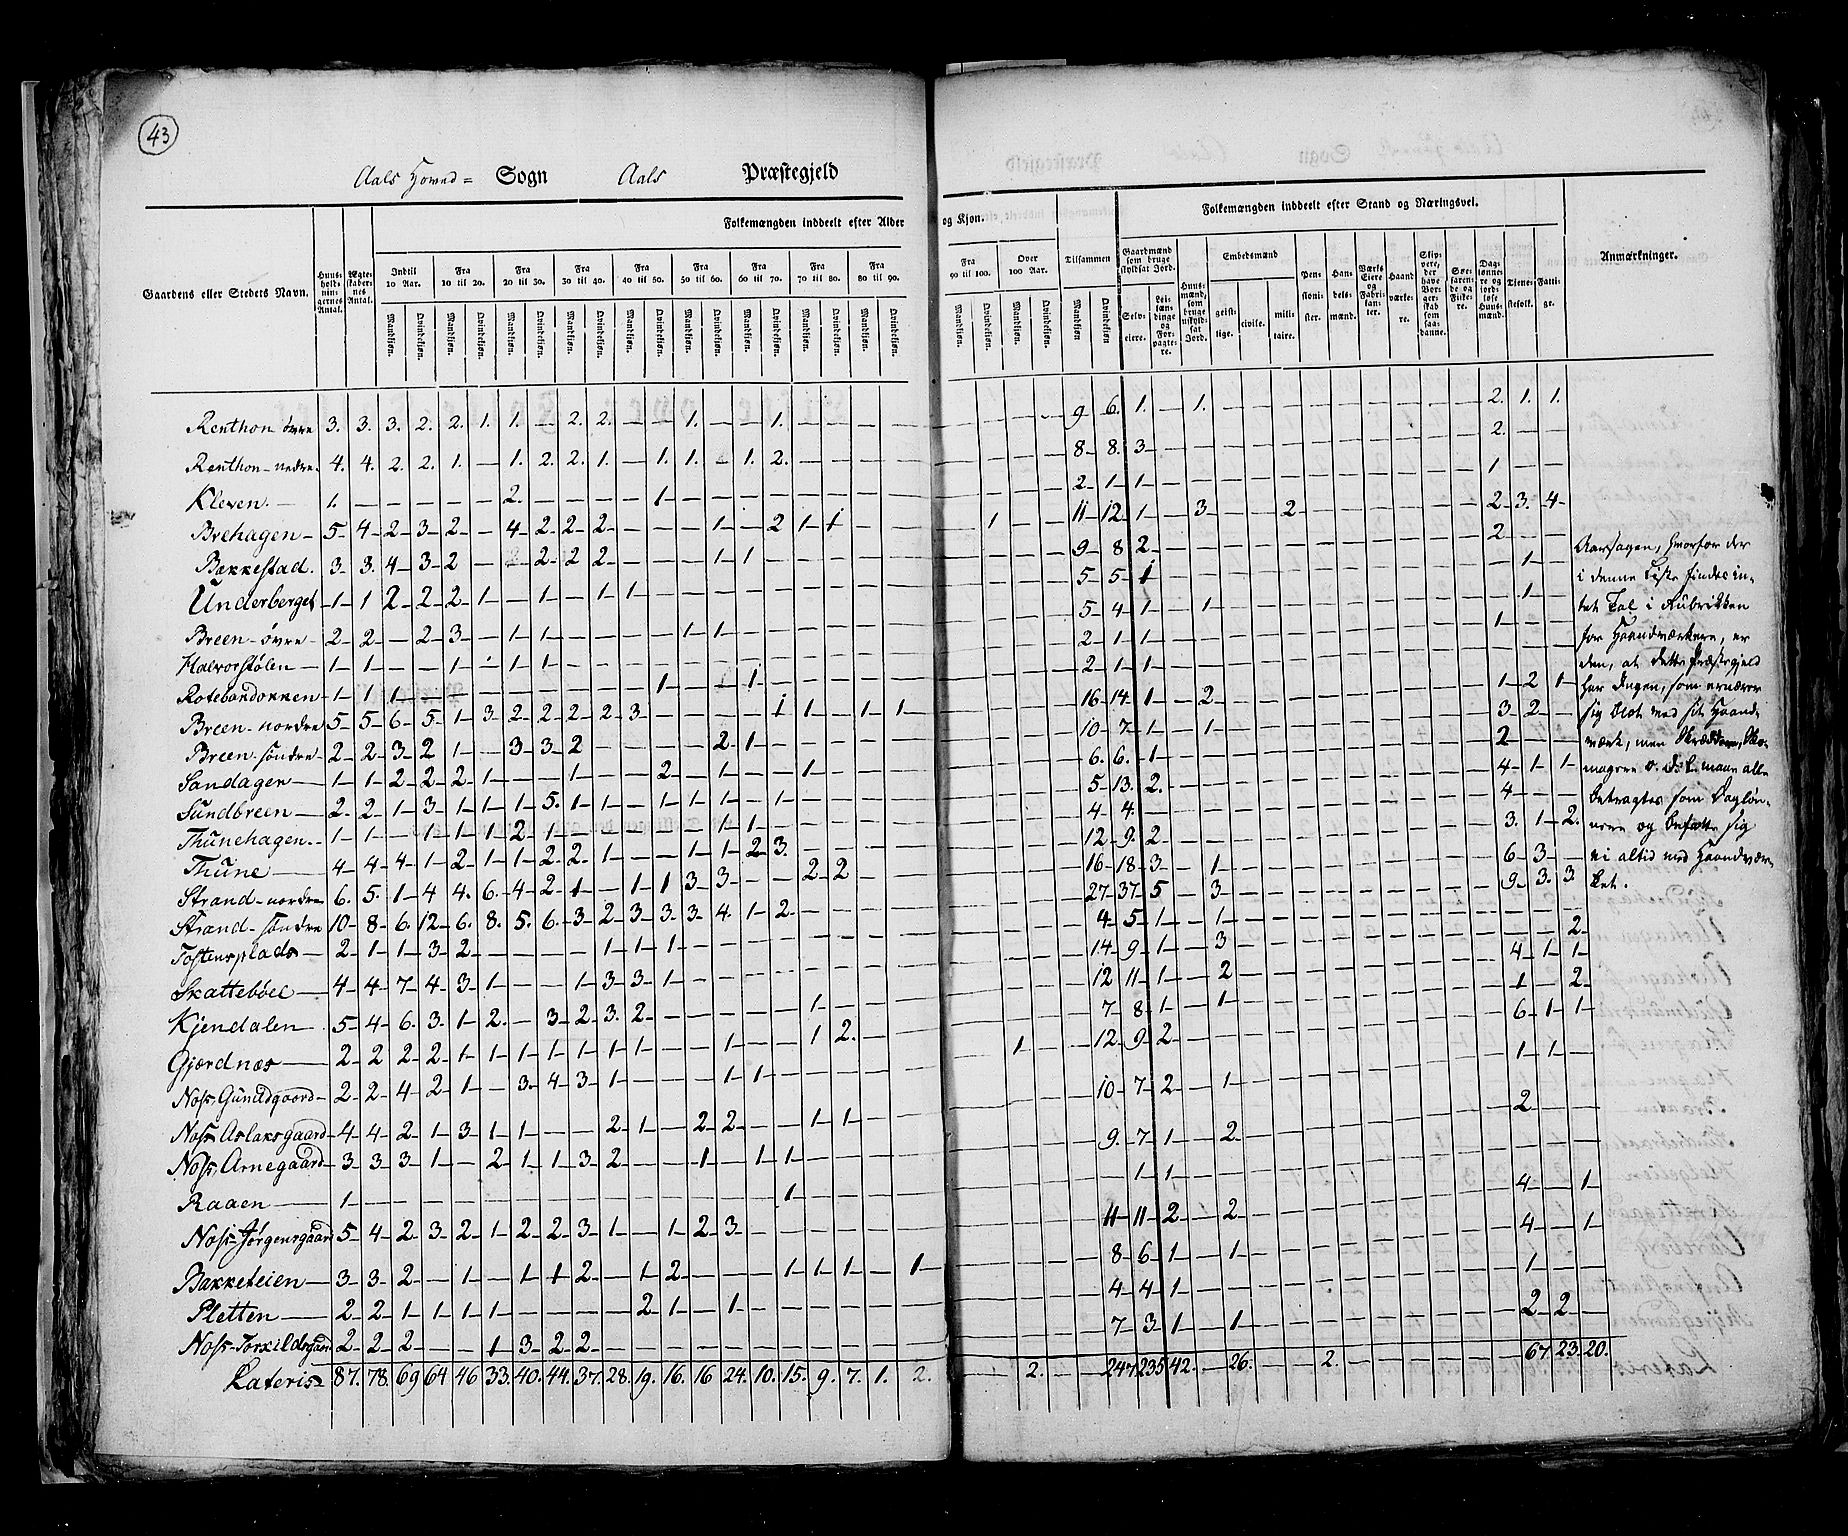 43
Aals Hoved= Sogn Aals Præstegjeld
Folkemængden inddeelt efter Alder og Kjøn.
Folkemængden inddeelt efter Stand og Næringsvei.
Gaardens eller Stedets Navn.
Huus-holdnin-gernes Antal.
Ægte-skaber-nes Antal.
Indtil 10 Aar.
Fra 10 til 20.
Fra 20 til 30.
Fra 30 til 40.
Fra 40 til 50.
Fra 50 til 60.
Fra 60 til 70.
Fra 70 til 80.
Fra 80 til 90.
Fra 90 til 100.
Over 100 Aar.
Tilsammen
Mandkjøn. Qvindekjøn.
Gaardmænd som bruge skyldsat Jord.
Selv-eiere.
Lei-lændinge og For-pagte-re.
Huus-mænd, som bruge uskyldsat Jord.
Embedsmænd
geist-lige.
civile.
mili-taire.
Pen-sioni-ster.
Han-dels-mænd.
Værks Eiere og Fabri-kan-ter.
Haand-værke-re.
Skip-pere, der have Bor-ger-skab som saa-danne.
Søe-farende og Fiske-re.
Dag-lønne-re og jord-løse Huus-mænd.
Tjene-stefolk.
Fatti-ge.
Anmærkninger.
Renthon øvre 3. 3. 3. 2. 2. 1. 1. — 2. 2. — — 1. — — 1. — — — — 9 6. 1. — 1. 2. 1. 1.
Renthon-nedre. 4. 4. 2. 2. 1. — 1. 2. 2. 1. — 1. 1. — 1. 2. 8 8. 3 2.
Kleven. 1. 2. 1 2 1 1 1
Brehagen 5 4 2 3 2 — 4 2 2 2 — — — 1 — 2 1 1 1 11 12 1 3 2 2 3. 4
Bækkestad. 3 3. 4 3 2 — 2 2 2 2 1 1 9 8 2 2
Underberget 1 1 2 2 2 1 — 1 — 1 1 5 5 1 1
Breen-øvre 2 2 — 2 3 — 1 1 1 1 5 4 1 1 1
Halvorstølen 1 1 1 1 1 2 1 1 1
Rotebordokken 1 1 1 1 1 2 1 1
Breen-nordre 5 5 6 5 1 3 2 2 2 2 3 1 1 1 1 16 14 1 2 1 2 1
Breen-søndre 2 2 3 2 1 — 3 3 2 2 1 10 7 1 1 3 2
Sandagen 1 1 2 2 2 1 1 2 1 1 6. 6. 1 2
Sundbreen 2 2 1 3 1 1 1 5. 1 1 1 1 1 1 5 13. 2. 4 1 1
Thunehagen. 1 1 — 1 1 1 2 1 1 1 4 4. 4
Thune 4 4 4 1 2 1 1 2 2 1 — — 1 1 2 3. 12 9. 2 3. 1 2.
Strand-nordre 6. 5. 1 4 4. 6 4 2 1 — 1 1 3 3 — — 2 2 16 18 3 1 6 3
Strand-søndre 10 8 6. 12 6. 8. 5. 6. 3 2 3 3 3 4. 1 2 27 37 5 3 9 3. 3
Tostensplads 2 1 1 3 2 1 1 1 4 5 1 1 2
Skattebøel 4 4 7 4 3 1 — — 1 3 3 1 14 9 1 3 4 1 1
Kjendalen 5 4 6. 3 1 2. — 3 2 3. 2 1 12 11 1 2 1 2
Gjærdnæs 2 2 2 2 1 1 1 1 1 1 1 1 1 2. 7 8 1 1 6 1 1
Noss Gunildgaard 2 2 4 2 1 — 3. 4 3 1 1 1 1 12 9 2
Noss Aslaksgaard 4 4 2 1 3 1 1 — — 2 1 — 2 2 1 1 10 7 2 1
Noss Arnegaard 3 3 3 1 — 2 1 1 3 2 — — 1 — 1 1 9. 7 1 2
Raaen 1 1 1 1
Noss-Jørgensgaard 5 4 2 3 2 1 2 2 3 1 — 1 2 3 11 11 2 2
Bakketeien 3 3 2 — 1 — 1 1 2 — 1 2 1 1 1 1 8 6 1 1
Pletten 2 2 1 1 1 1 2 1 1 4 4 1
Noss-Torkildsgaard 2 2 2 1 3 2 2 7 3 1 1 2 2
Lateris 87. 78. 69 64 46 33. 40. 44. 37. 28. 19. 16. 16 24. 10. 15. 9. 7. 1. 2. 2. 247 235 42. — 26. 2. 67 23. 20.
Aarsagen, hvorfor der
i denne Liste findes in-
tet Tal i Rubrikken
for Haandværkere, er
den, at dette Præstegjeld
har Ingen, som ernærer
sig blot med sit Haand-
værk, men Skræddere, Sko-
magere o. d. l. maae alle
betragtes som Dagløn-
nere og befatte sig
ei altid med Haandvær-
ket.